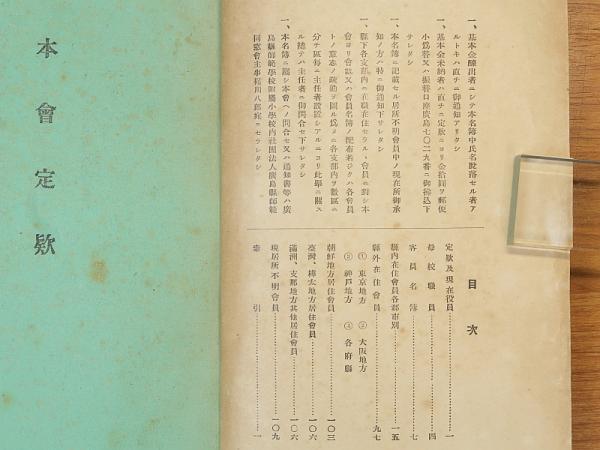 一、基本金醵出者ニシテ本名簿中氏名脱落セル者ア
ルトキハ直チニ御通知アリタシ
一、基本金未納者ハ直チニ定款ニヨリ金拾圓ヲ郵便
小爲替又ハ振替口座廣島七〇二九番ニ御拂込下
サレタシ
一、本名簿ニ記載セル居所不明會員中ノ現在所御承
知ノ方ハ特ニ御通知下サレタシ
一、縣下各支部内ニ在職在住セラルヽ會員ニ對シ本
會ヨリ會報又ハ會員名簿ノ配布若シクハ各會員
トノ意志ノ疏通ヲ圖ル爲メニ各支部内ヲ數區ニ
分チ區毎ニ主任者設置シアルニヨリ此畢ニ關ス
ル總テハ主任者ニ御問合セ下サレタシ
一、本名簿ニ關シ本會ヘノ問合セ又ハ通知書等ハ廣
島縣師範學校附屬小學校内社團法人廣島縣師範
同窓會主事 川八郎宛ニセラレタシ
目次
定款及現在役員 一
母校職員 四
客員名簿 七
縣内在住會員各郡市別 一五
縣外在住會員 九七
① 東京地方 ② 大阪地方
③ 神戸地方 ④ 各府縣
朝鮮地方居住會員 一〇三
臺灣、樺太地方居住會員 一〇六
滿洲、支那地方其他居住會員 一〇六
現居所不明會員 一〇九
索引 一
本會定款